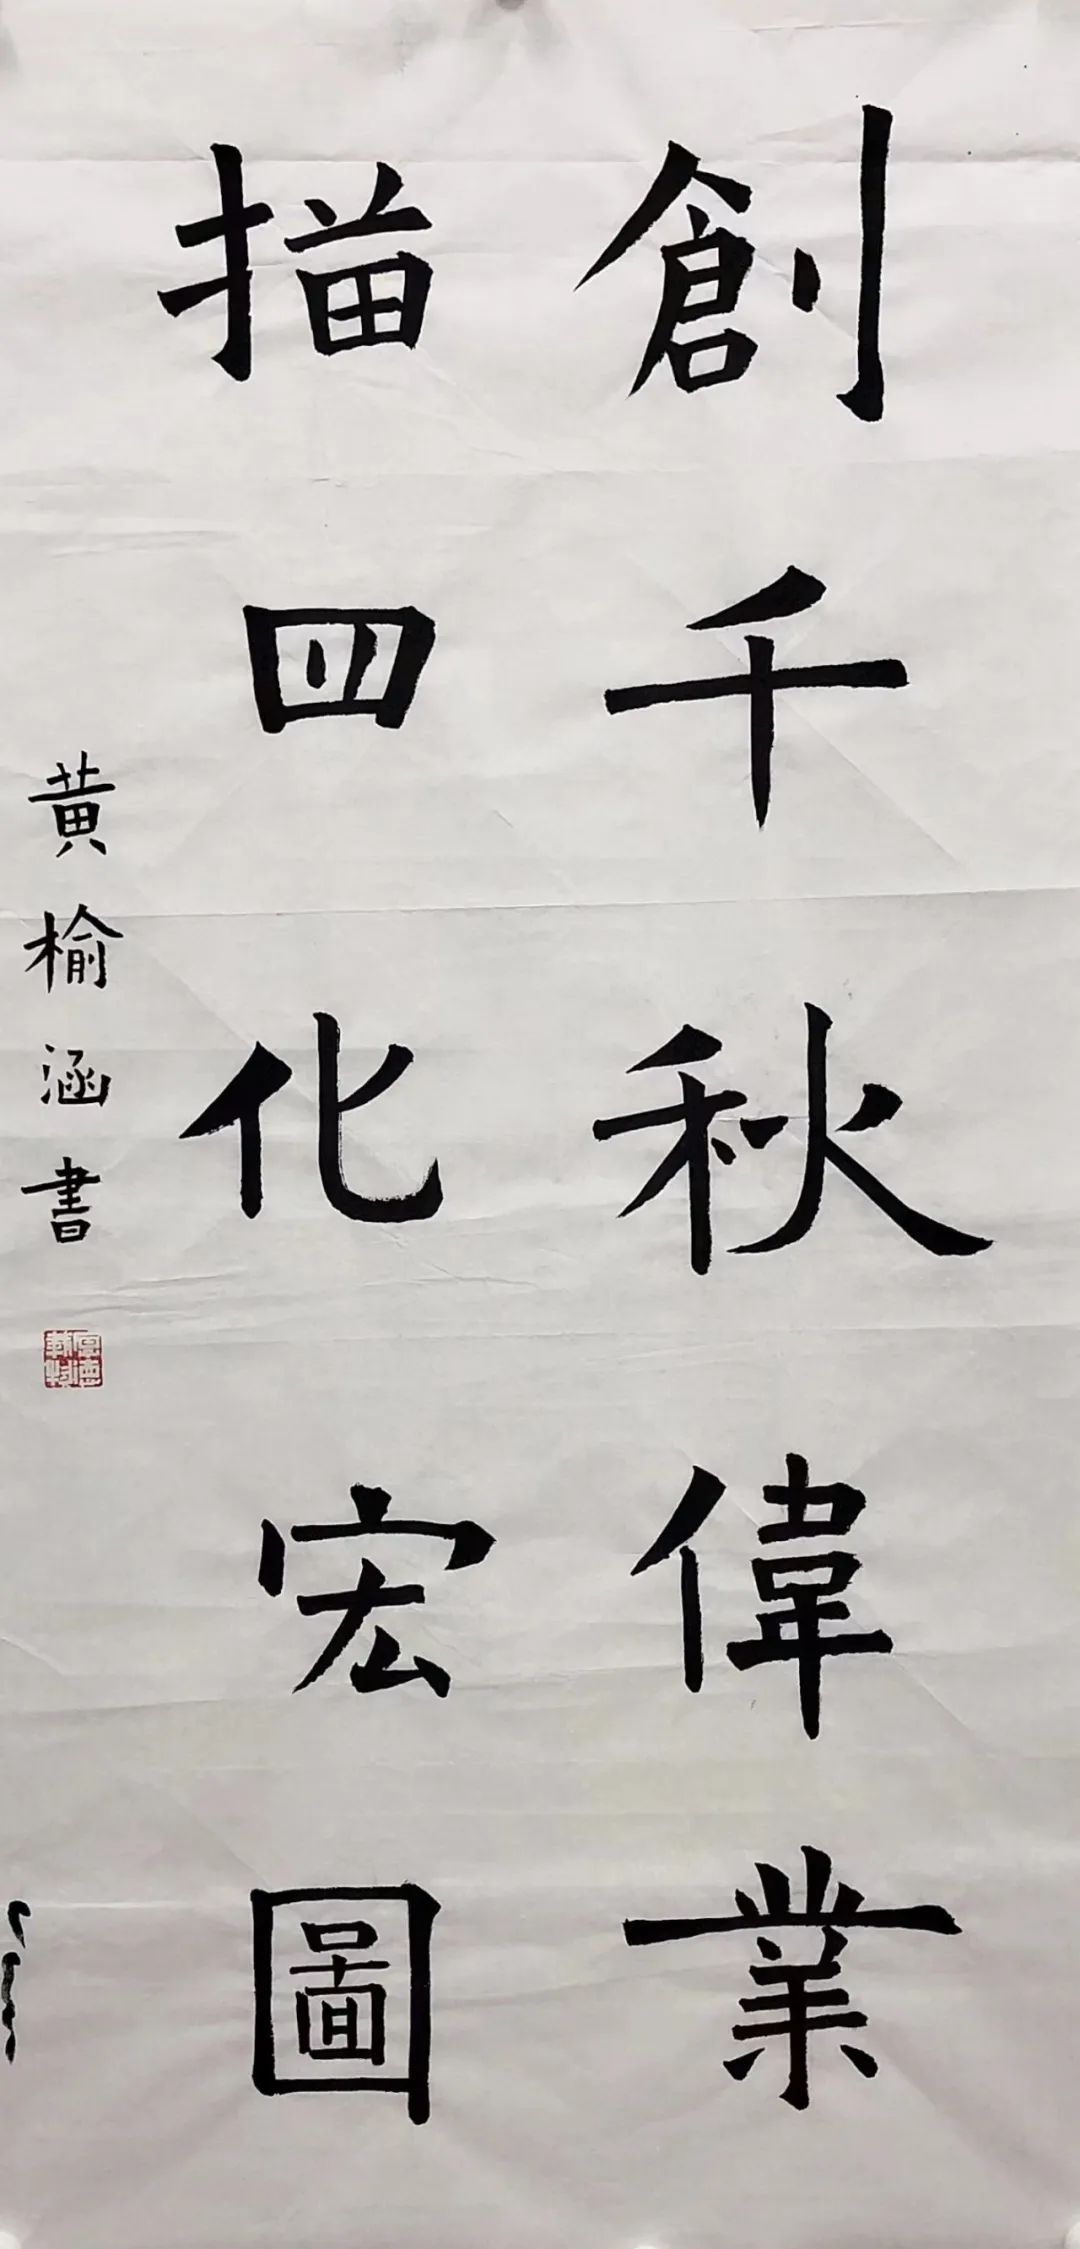 創千秋偉業
描四化宏圖
黄榆涵書